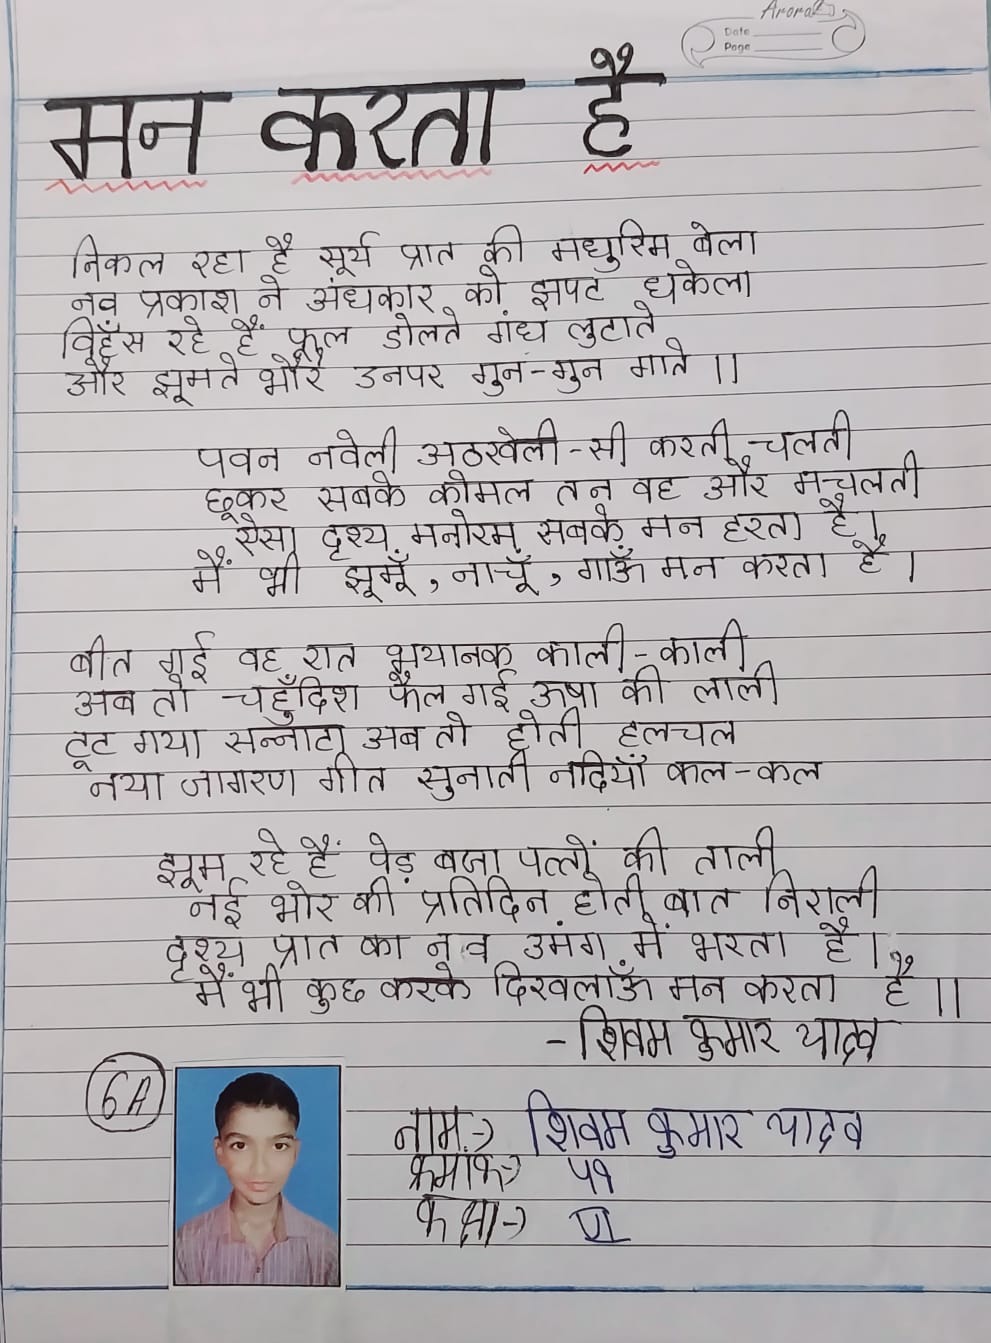 Arora
Date
Page
मन करता है
निकल रहा है सूर्य प्रात की मधुरिम बेला
नव प्रकाश ने अंधकार को झपट धकेला
विहँस रहे हैं फूल डोलते गंध लुटाते
और झूमते भौंरे उनपर गुन-गुन गाते ।।
पवन नवेली अठखेली-सी करती चलती
छूकर सबके कोमल तन वह और मचलती
ऐसा दृश्य मनोरम सबके मन हरता है।
मैं भी झूमूँ, नाचूँ, गाऊँ मन करता है ।
बीत गई वह रात भयानक काली-काली
अब तो चहुँदिश फैल गई ऊषा की लाली
टूट गया सन्नाटा अब तो होती हलचल
नया जागरण गीत सुनाती नदियाँ कल-कल
झूम रहे हैं पेड़ बजा पत्तों की ताली
नई भोर की प्रतिदिन होती बात निराली
दृश्य प्रात का नव उमंग में भरता है।
मैं भी कुछ करके दिखलाऊँ मन करता है ।।
- शिवम कुमार यादव
6A
नाम:-> शिवम कुमार यादव
क्रमांक-> ५१
कक्षा-> VI